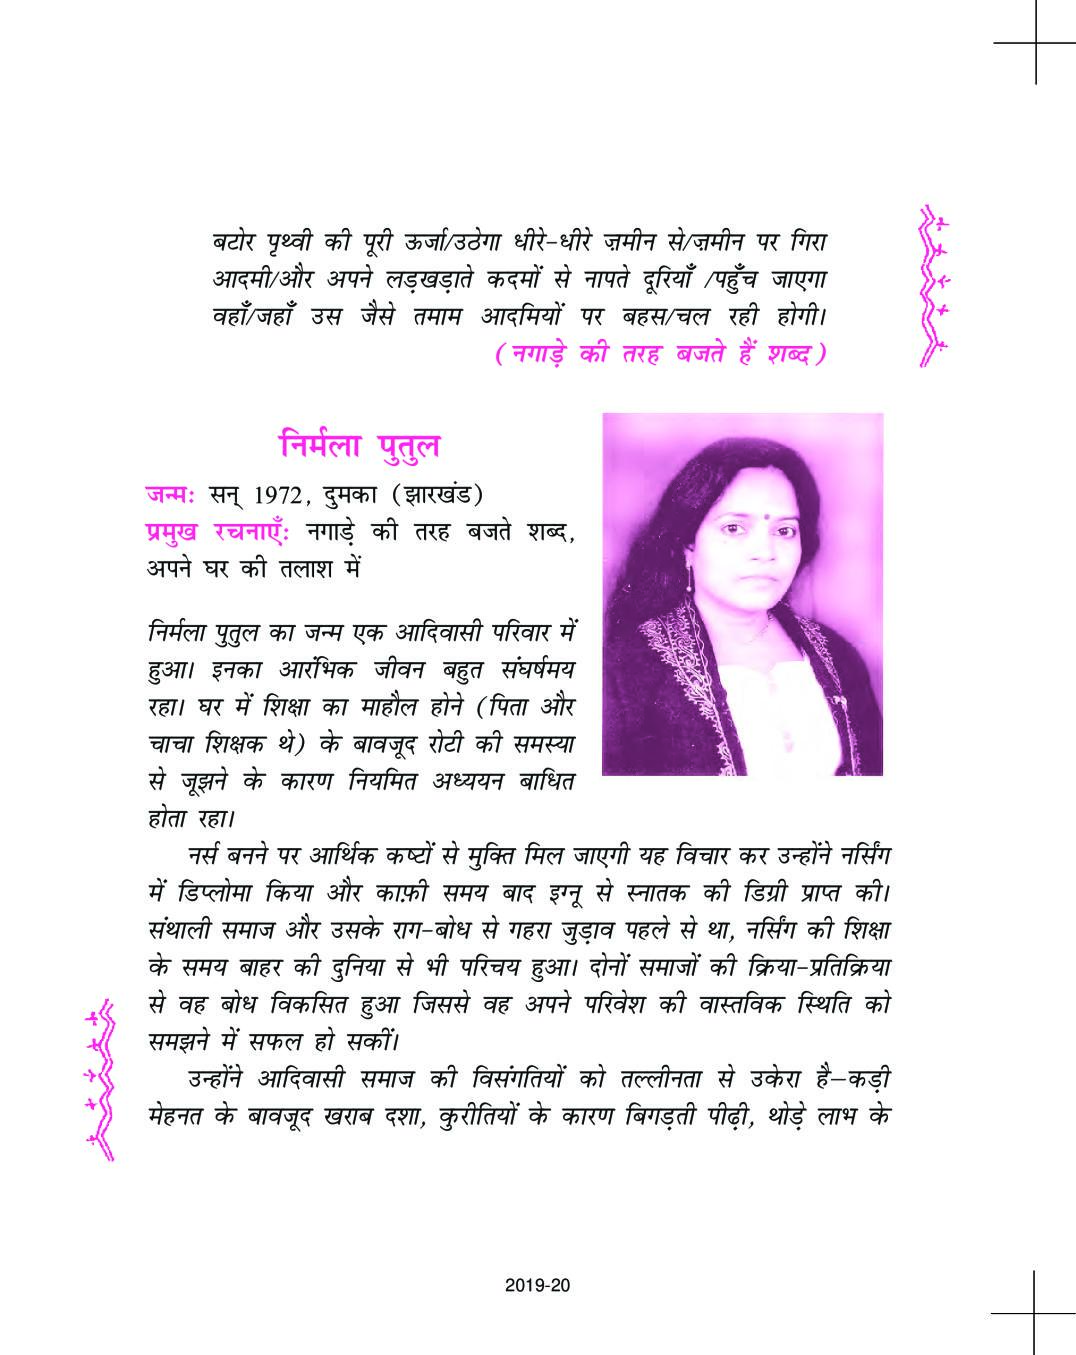 बटोर पृथ्वी की पूरी ऊर्जा/उठेगा धीरे-धीरे ज़मीन से/ज़मीन पर गिरा
आदमी/और अपने लड़खड़ाते कदमों से नापते दूरियाँ /पहुँच जाएगा
वहाँ/जहाँ उस जैसे तमाम आदमियों पर बहस/चल रही होगी।
(नगाड़े की तरह बजते हैं शब्द)
निर्मला पुतुल
जन्मः सन् 1972, दुमका (झारखंड)
प्रमुख रचनाएँः नगाड़े की तरह बजते शब्द,
अपने घर की तलाश में
निर्मला पुतुल का जन्म एक आदिवासी परिवार में
हुआ। इनका आरंभिक जीवन बहुत संघर्षमय
रहा। घर में शिक्षा का माहौल होने (पिता और
चाचा शिक्षक थे) के बावजूद रोटी की समस्या
से जूझने के कारण नियमित अध्ययन बाधित
होता रहा।
नर्स बनने पर आर्थिक कष्टों से मुक्ति मिल जाएगी यह विचार कर उन्होंने नर्सिंग
में डिप्लोमा किया और काफ़ी समय बाद इग्नू से स्नातक की डिग्री प्राप्त की।
संथाली समाज और उसके राग-बोध से गहरा जुड़ाव पहले से था, नर्सिंग की शिक्षा
के समय बाहर की दुनिया से भी परिचय हुआ। दोनों समाजों की क्रिया-प्रतिक्रिया
से वह बोध विकसित हुआ जिससे वह अपने परिवेश की वास्तविक स्थिति को
समझने में सफल हो सकीं।
उन्होंने आदिवासी समाज की विसंगतियों को तल्लीनता से उकेरा है–कड़ी
मेहनत के बावजूद खराब दशा, कुरीतियों के कारण बिगड़ती पीढ़ी, थोड़े लाभ के
2019-20